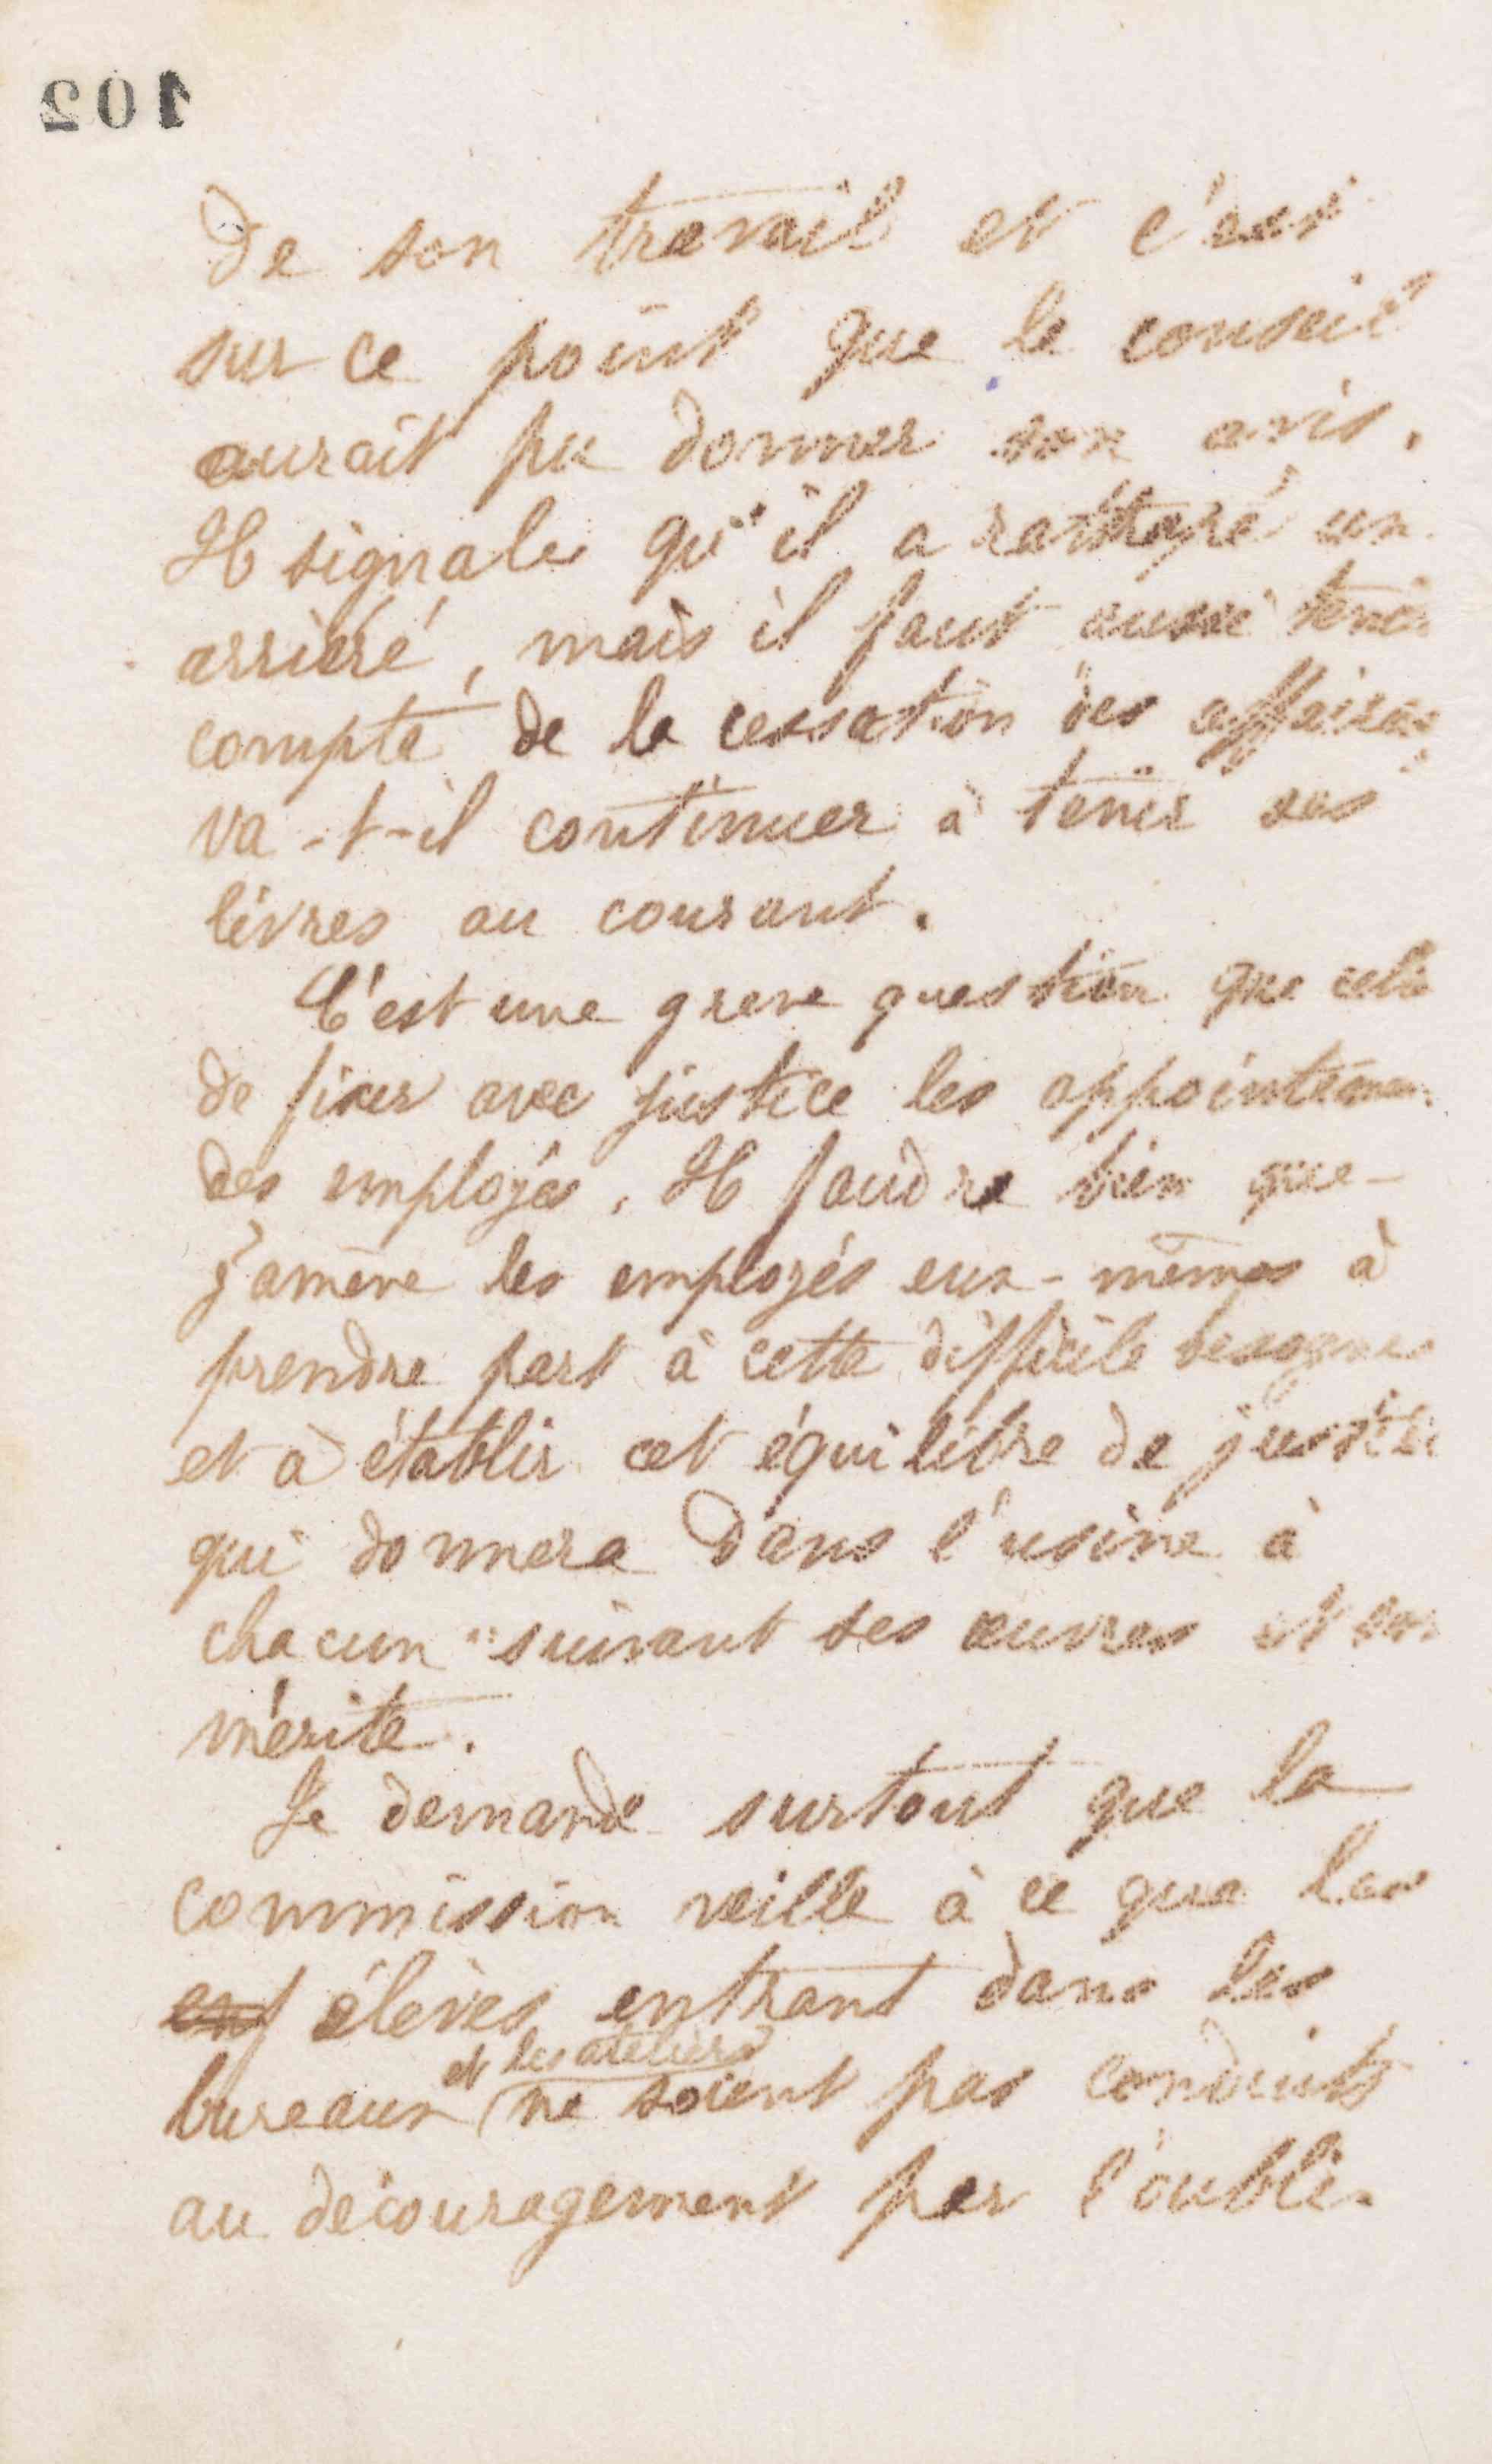 102
de son travail et c'est
sur ce point que le conseil
aurait pu donner son avis.
Il signale qu'il a rattrapé un
arriéré, mais il faut aussi tenir
compte de la cessation des affaires
va-t-il continuer à tenir ses
livres au courant.
C'est une grave question que celle
de fixer avec justice les appointemen
des employés. Il faudra bien que
j'amène les employés eux-mêmes à
prendre part à cette difficile besogne
et à établir cet équilibre de justice
qui donnera dans l'usine à
chacun suivant ses œuvres et son
mérite.
Je demande surtout que la
commission veille à ce que les
enf élèves entrant dans les
et les ateliers
bureaux ne soient pas conduits
au découragement par l'oubli